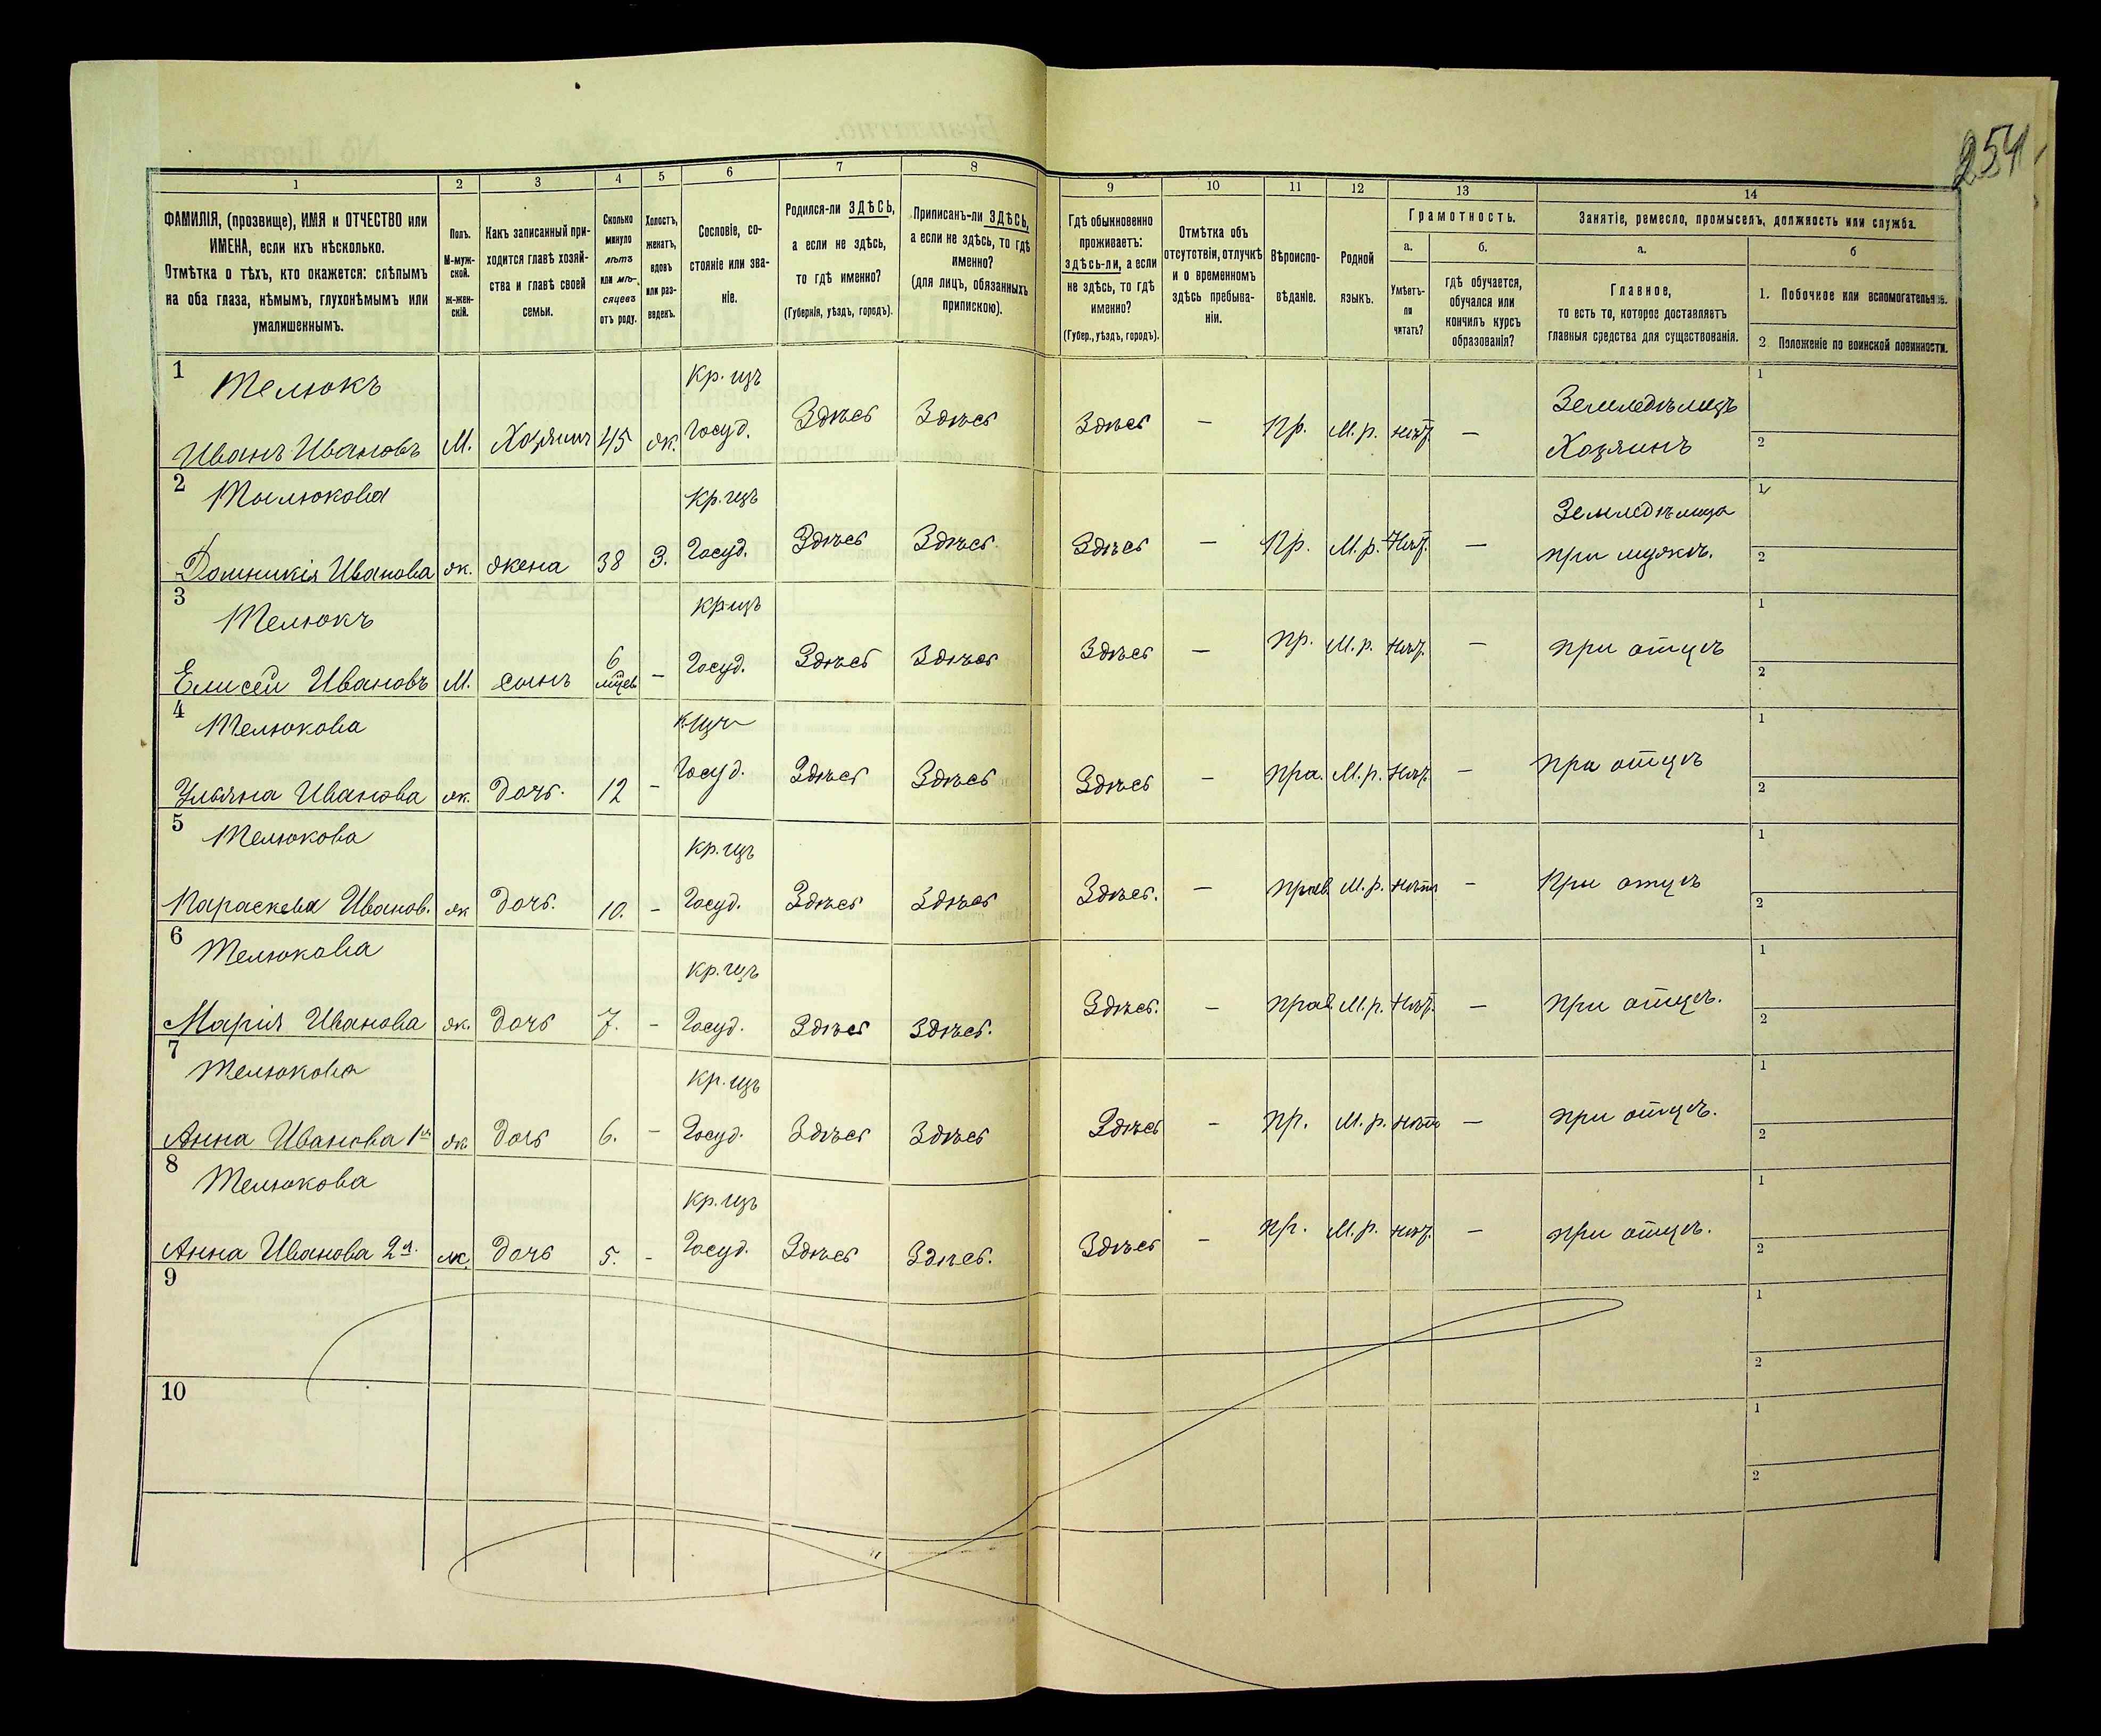 254
1 2 3 4 5 6 7 8 9 10 11 12 13 14
ФАМИЛІЯ, (прозвище), ИМЯ и ОТЧЕСТВО или
ИМЕНА, если ихъ нѣсколько.
Отмѣтка о тѣхъ, кто окажется: слѣпымъ
на оба глаза, нѣмымъ, глухонѣмымъ или
умалишеннымъ.
Полъ.
М-муж-
ской.
ж-жен-
скій.
Какъ записанный при-
ходится главѣ хозяй-
ства и главѣ своей
семьи.
Сколько
минуло
лѣтъ
или мѣ-
сяцевъ
отъ роду.
Холостъ,
женатъ,
вдовъ
или раз-
веденъ.
Сословіе, со-
стояніе или зва-
ніе.
Родился-ли ЗДѢСЬ,
а если не здѣсь,
то гдѣ именно?
(Губернія, уѣздъ, городъ).
Приписанъ-ли ЗДѢСЬ,
а если не здѣсь, то гдѣ
именно?
(для лицъ, обязанныхъ
припискою).
Гдѣ обыкновенно
проживаетъ:
здѣсь-ли, а если
не здѣсь, то гдѣ
именно?
(Губер., уѣздъ, городъ).
Отмѣтка объ
отсутствіи, отлучкѣ
и о временномъ
здѣсь пребыва-
ніи.
Вѣроиспо-
вѣданіе.
Родной
языкъ.
Грамотность.
а.
Умѣетъ-
ли
читать?
б.
гдѣ обучается,
обучался или
кончилъ курсъ
образованія?
Занятіе, ремесло, промыселъ, должность или служба.
а.
Главное,
то есть то, которое доставляетъ
главныя средства для существованія.
б
1. Побочное или вспомогательное.
2 Положеніе по воинской повинности.
1 Телюкъ Кр. цъ Земледѣлецъ 1
Иванъ Ивановъ М. Хозяинъ 45 ж. Госуд. Здѣсь Здѣсь Здѣсь — Пр. М. р. нѣт. — Хозяинъ 2
2 Тылюкова Кр. цъ Земледѣлица 1
Домникія Иванова ж. жена 38 З. Госуд. Здѣсь Здѣсь. Здѣсь — Пр. М. р. Нѣт. — при мужѣ. 2
3 Телюкъ Крцъ 1
Елисей Ивановъ М. сынъ 6 мѣцев — Госуд. Здѣсь Здѣсь Здѣсь — пр. М. р. нѣт. — при отцѣ 2
4 Телюкова к. цъ 1
Ульяна Иванова ж. дочь. 12 - Госуд. Здѣсь Здѣсь Здѣсь - пра. М. р. Нѣт. — при отцѣ 2
5 Телюкова Кр. цъ 1
Параскева Иванов. ж дочь. 10. - Госуд. Здѣсь Здѣсь Здѣсь. — прав М. р. нѣтъ - При отцѣ 2
6 Телюкова Кр. цъ 1
Марія Иванова ж. дочь 7. - Госуд. Здѣсь Здѣсь. Здѣсь. - прав М. р. Нѣт. — при отцѣ. 2
7 Телюкова Кр. цъ 1
Анна Иванова 1я ж. дочь 6. - Госуд. Здѣсь Здѣсь Здѣсь - пр. М. р. нѣтъ — при отцѣ. 2
8 Телюкова Кр. цъ 1
Анна Иванова 2я. ж. дочь 5. - Госуд. Здѣсь Здѣсь. Здѣсь - пр. М. р. нѣт. — при отцѣ. 2
9 1
2
10 1
2